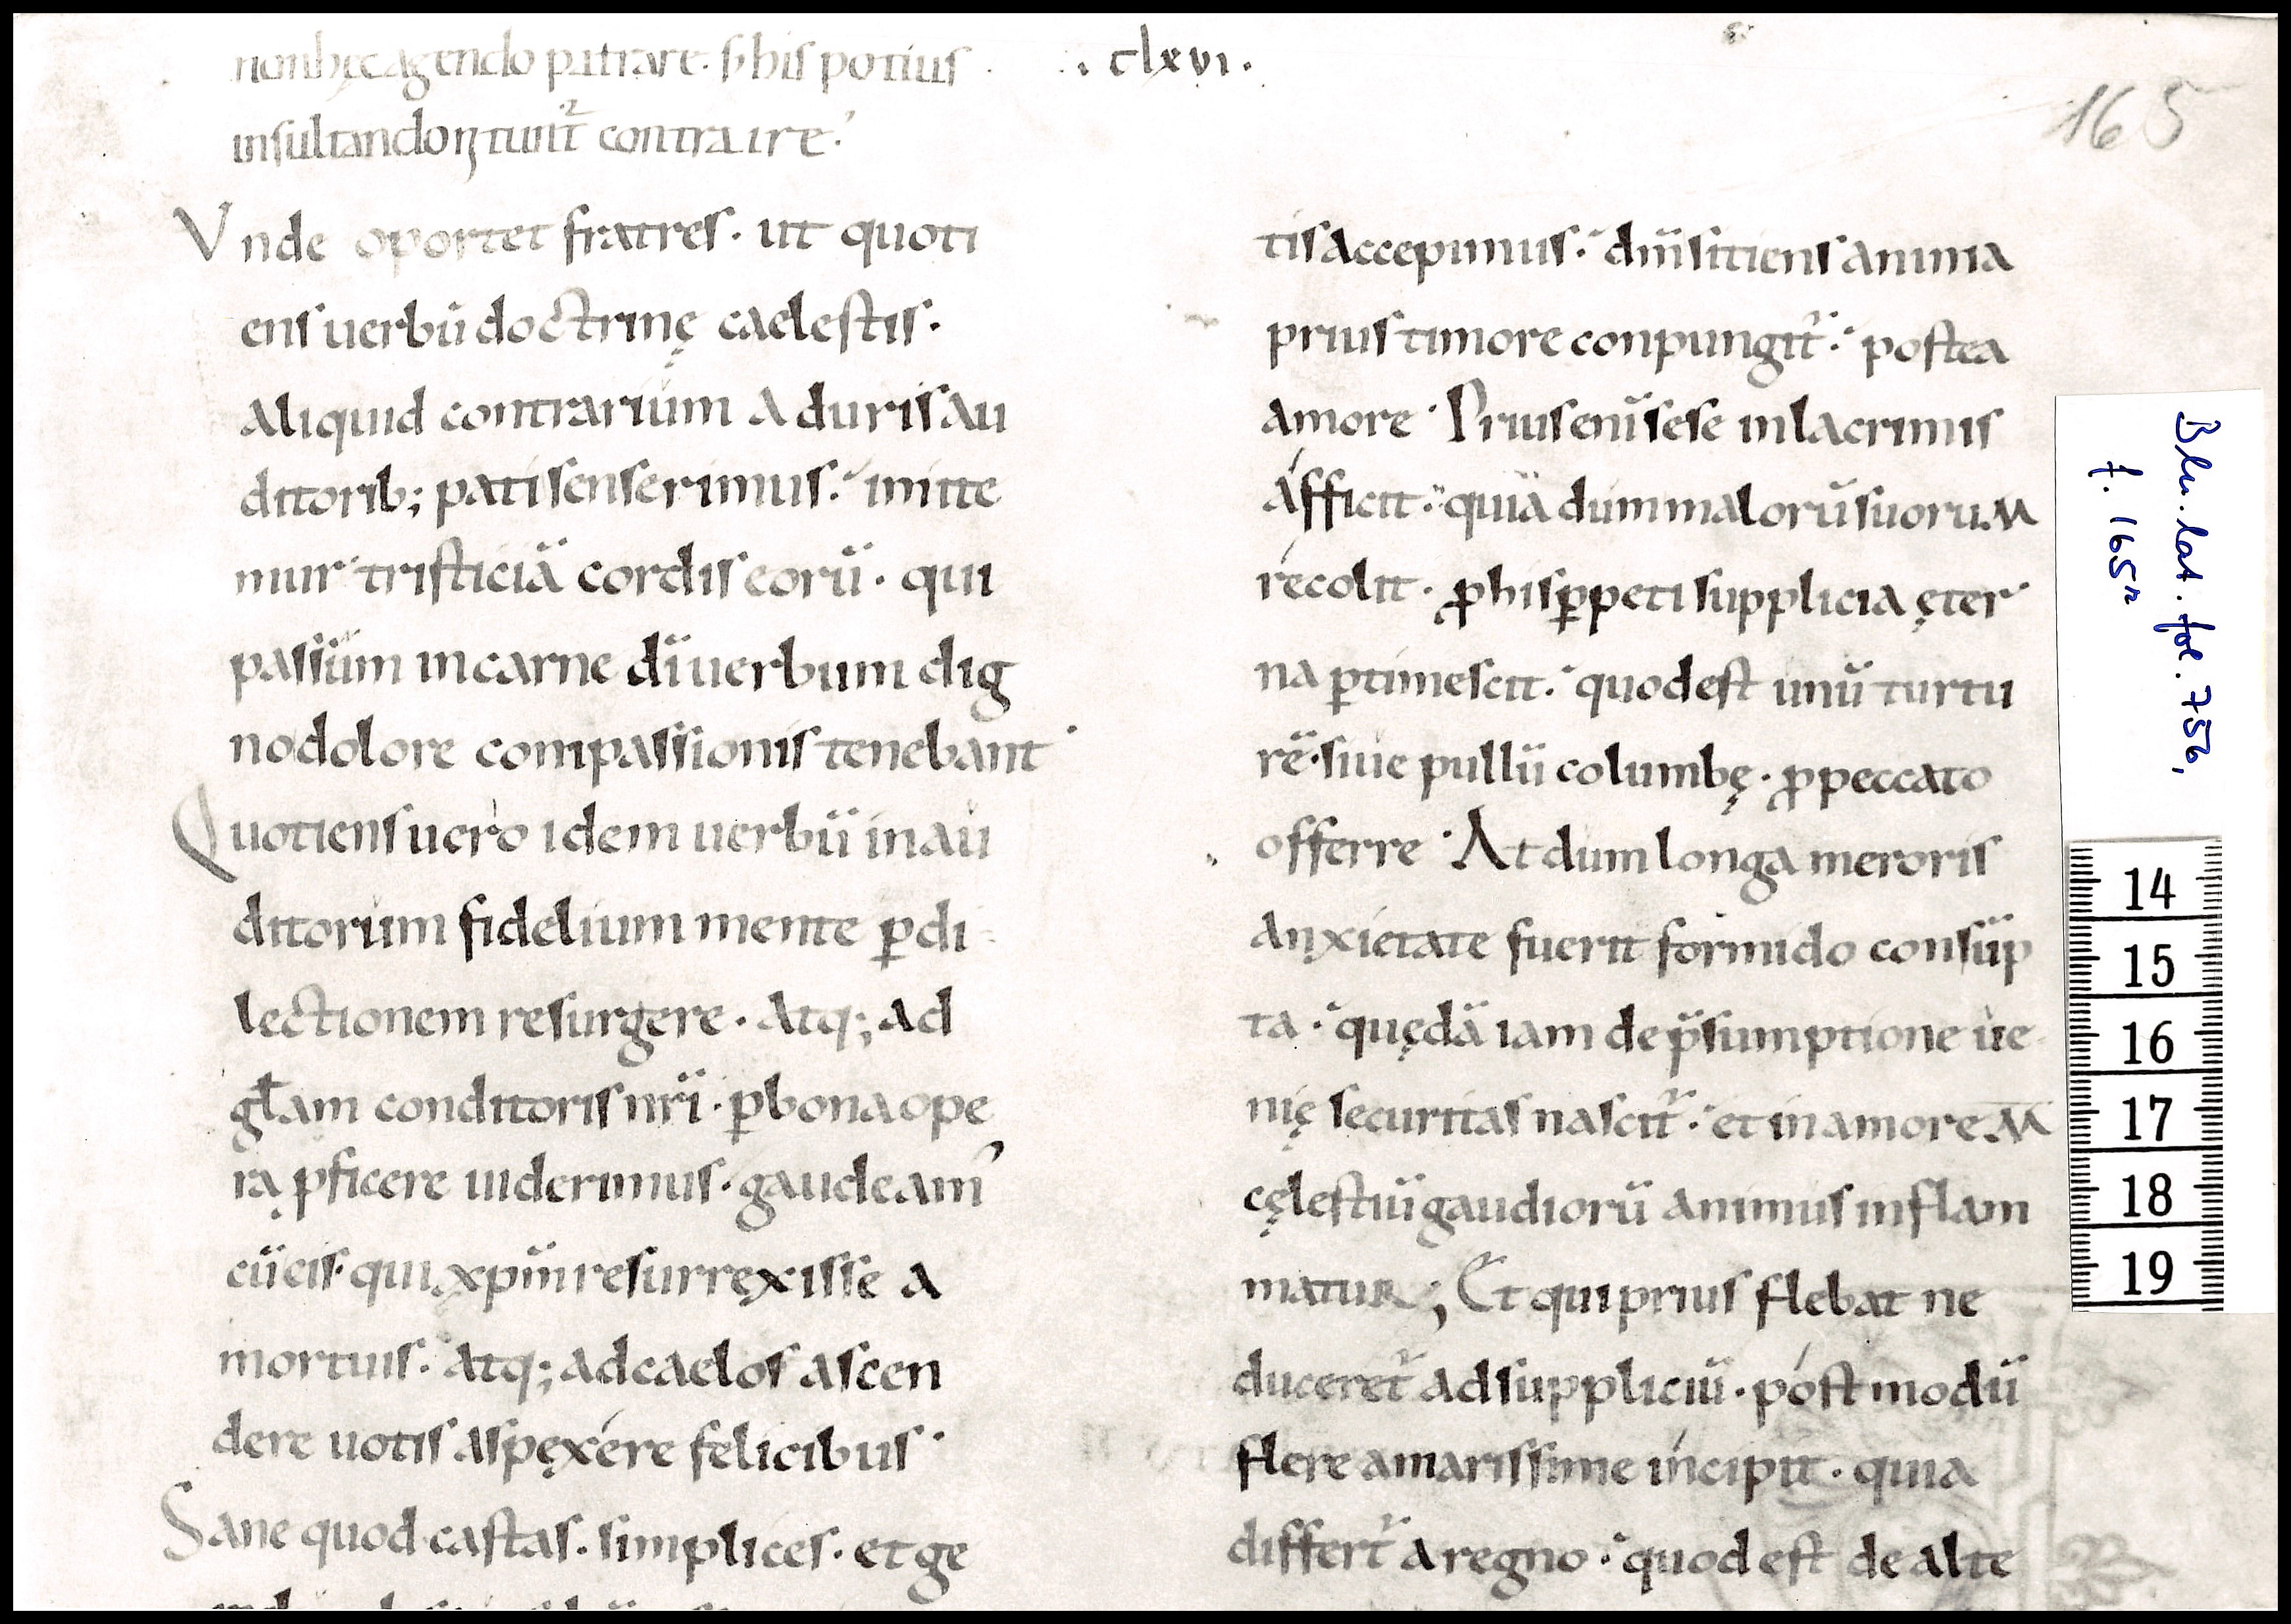 nonhęc agendo patrare. s; his potius
insultando nitunt᷑ contraire.
.clxvi.
165
Vnde oportet fratres. ut quoti
ens uerbū doctrinę caelestis.
aliquid contrarium a duris au
ditorib; pati senserimus. imite
mur tristiciā cordis eorū. qui
passum in carne dī uerbum dig
no dolore compassionis tenebant.
Quotiens uero idem uerbū in au
ditorum fidelium mente ꝑ di
lectionem resurgere. atq; ad
głam conditoris nr̄i. ꝑ bona ope
rą ꝓficere uiderimus. gaudeam᾽
cū eis. qui xp̄m resurręxisse a
mortuis. atq; ad caelos ascen
dere uotis aspęxére felicibus.
Sane quod castas. simplices. et ge
tis accepimus. dm̄ sitiens anima
prius timore conpungit᷑. postea
amore. Prius enī sese in lacrimis
áfficit. quia dum malorū suorum
récolit. ꝓ his ꝑpeti supplicia ęter
na ꝑtimescit. quod est unū turtu
rē. siue pullū columbę. ꝓ peccato
offerre. At dum longa meroris
anxietate fuerit formido consūp
ta. quędā iam de p̄sumptione ue
nię securitas nascit᷑. et in amorem
cęlestiū gaudiorū animus inflam
matur; Et qui prius flebat ne
duceret᷑ ad suppliciū. póst modū
flere amarissime íncipit. quia
differt᷑ a regno. quod est de alte
Bln. lat. fol. 756,
f. 165r
14
15
16
17
18
19